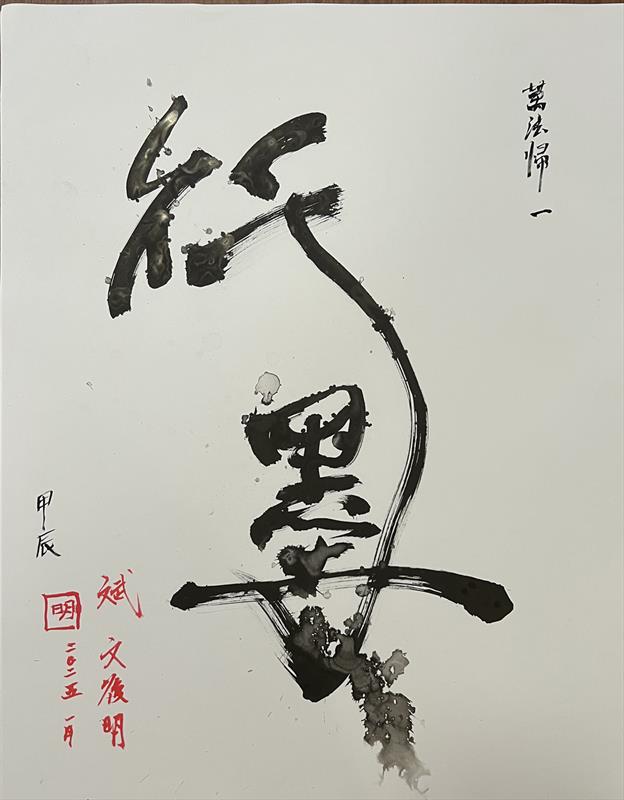 萬法帰一
行墨
斌 文 明
甲辰
明
二〇二五 一月